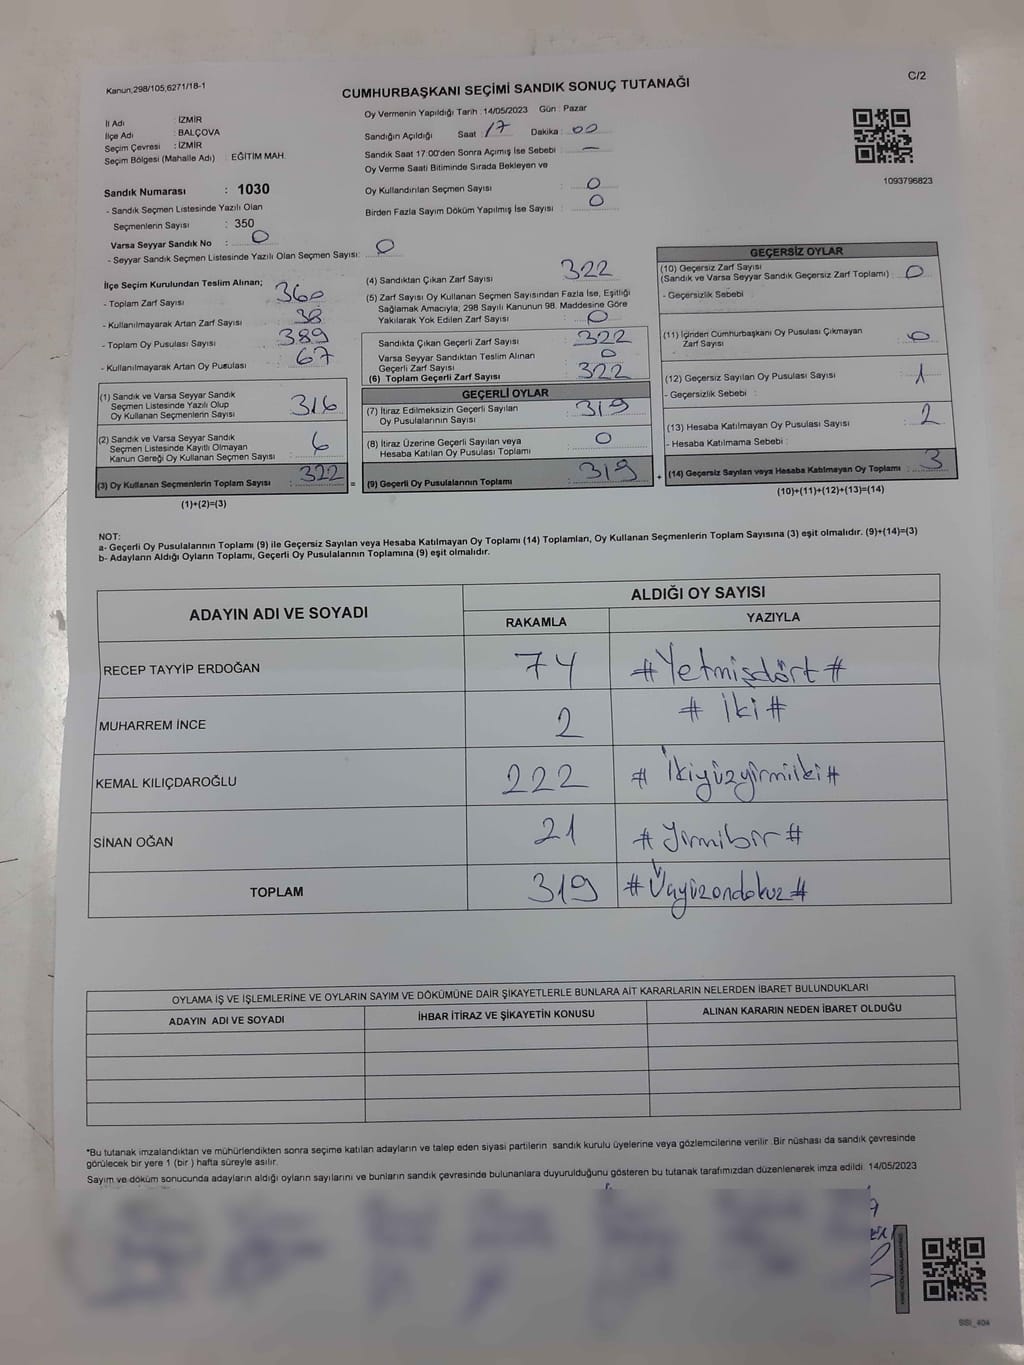 Kanun,298/105,6271/18-1
C/2
CUMHURBAŞKANI SEÇİMİ SANDIK SONUÇ TUTANAĞI
İl Adı : İZMİR
İlçe Adı : BALÇOVA
Seçim Çevresi : İZMİR
Seçim Bölgesi (Mahalle Adı) : EĞİTİM MAH.
Oy Vermenin Yapıldığı Tarih : 14/05/2023 Gün : Pazar
Sandığın Açıldığı Saat 17 Dakika : 00
Sandık Saat 17:00'den Sonra Açımış İse Sebebi : —
Oy Verme Saati Bitiminde Sırada Bekleyen ve
Oy Kullandırılan Seçmen Sayısı : 0
Birden Fazla Sayım Döküm Yapılmış İse Sayısı : 0
1093796823
Sandık Numarası : 1030
- Sandık Seçmen Listesinde Yazılı Olan
Seçmenlerin Sayısı : 350
Varsa Seyyar Sandık No : 0
- Seyyar Sandık Seçmen Listesinde Yazılı Olan Seçmen Sayısı: 0
İlçe Seçim Kurulundan Teslim Alınan;
- Toplam Zarf Sayısı : 360
- Kullanılmayarak Artan Zarf Sayısı : 38
- Toplam Oy Pusulası Sayısı : 389
- Kullanılmayarak Artan Oy Pusulası : 67
(1) Sandık ve Varsa Seyyar Sandık
Seçmen Listesinde Yazılı Olup
Oy Kullanan Seçmenlerin Sayısı : 316
(2) Sandık ve Varsa Seyyar Sandık
Seçmen Listesinde Kayıtlı Olmayan
Kanun Gereği Oy Kullanan Seçmen Sayısı : 6
(3) Oy Kullanan Seçmenlerin Toplam Sayısı : 322
(1)+(2)=(3)
(4) Sandıktan Çıkan Zarf Sayısı : 322
(5) Zarf Sayısı Oy Kullanan Seçmen Sayısından Fazla İse, Eşitliği
Sağlamak Amacıyla; 298 Sayılı Kanunun 98. Maddesine Göre
Yakılarak Yok Edilen Zarf Sayısı : 0
Sandıkta Çıkan Geçerli Zarf Sayısı : 322
Varsa Seyyar Sandıktan Teslim Alınan
Geçerli Zarf Sayısı : 0
(6) Toplam Geçerli Zarf Sayısı : 322
GEÇERLİ OYLAR
(7) İtiraz Edilmeksizin Geçerli Sayılan
Oy Pusulalarının Sayısı : 319
(8) İtiraz Üzerine Geçerli Sayılan veya
Hesaba Katılan Oy Pusulası Toplamı : 0
= (9) Geçerli Oy Pusulalarının Toplamı : 319
GEÇERSİZ OYLAR
(10) Geçersiz Zarf Sayısı
(Sandık ve Varsa Seyyar Sandık Geçersiz Zarf Toplamı) : 0
- Geçersizlik Sebebi :
(11) İçinden Cumhurbaşkanı Oy Pusulası Çıkmayan
Zarf Sayısı : 0
(12) Geçersiz Sayılan Oy Pusulası Sayısı : 1
- Geçersizlik Sebebi :
(13) Hesaba Katılmayan Oy Pusulası Sayısı : 2
- Hesaba Katılmama Sebebi :
+ (14) Geçersiz Sayılan veya Hesaba Katılmayan Oy Toplamı : 3
(10)+(11)+(12)+(13)=(14)
NOT:
a- Geçerli Oy Pusulalarının Toplamı (9) ile Geçersiz Sayılan veya Hesaba Katılmayan Oy Toplamı (14) Toplamları, Oy Kullanan Seçmenlerin Toplam Sayısına (3) eşit olmalıdır. (9)+(14)=(3)
b- Adayların Aldığı Oyların Toplamı, Geçerli Oy Pusulalarının Toplamına (9) eşit olmalıdır.
ADAYIN ADI VE SOYADI ALDIĞI OY SAYISI
RAKAMLA YAZIYLA
RECEP TAYYİP ERDOĞAN 74 #Yetmişdört#
MUHARREM İNCE 2 # İki #
KEMAL KILIÇDAROĞLU 222 # İkiyüzyirmiiki#
SİNAN OĞAN 21 #Yirmibir#
TOPLAM 319 #Üçyüzondokuz#
OYLAMA İŞ VE İŞLEMLERİNE VE OYLARIN SAYIM VE DÖKÜMÜNE DAİR ŞİKAYETLERLE BUNLARA AİT KARARLARIN NELERDEN İBARET BULUNDUKLARI
ADAYIN ADI VE SOYADI İHBAR İTİRAZ VE ŞİKAYETİN KONUSU ALINAN KARARIN NEDEN İBARET OLDUĞU
*Bu tutanak imzalandıktan ve mühürlendikten sonra seçime katılan adayların ve talep eden siyasi partilerin sandık kurulu üyelerine veya gözlemcilerine verilir. Bir nüshası da sandık çevresinde
görülecek bir yere 1 (bir ) hafta süreyle asılır.
Sayım ve döküm sonucunda adayların aldığı oyların sayılarını ve bunların sandık çevresinde bulunanlara duyurulduğunu gösteren bu tutanak tarafımızdan düzenlenerek imza edildi. 14/05/2023
SSI_404